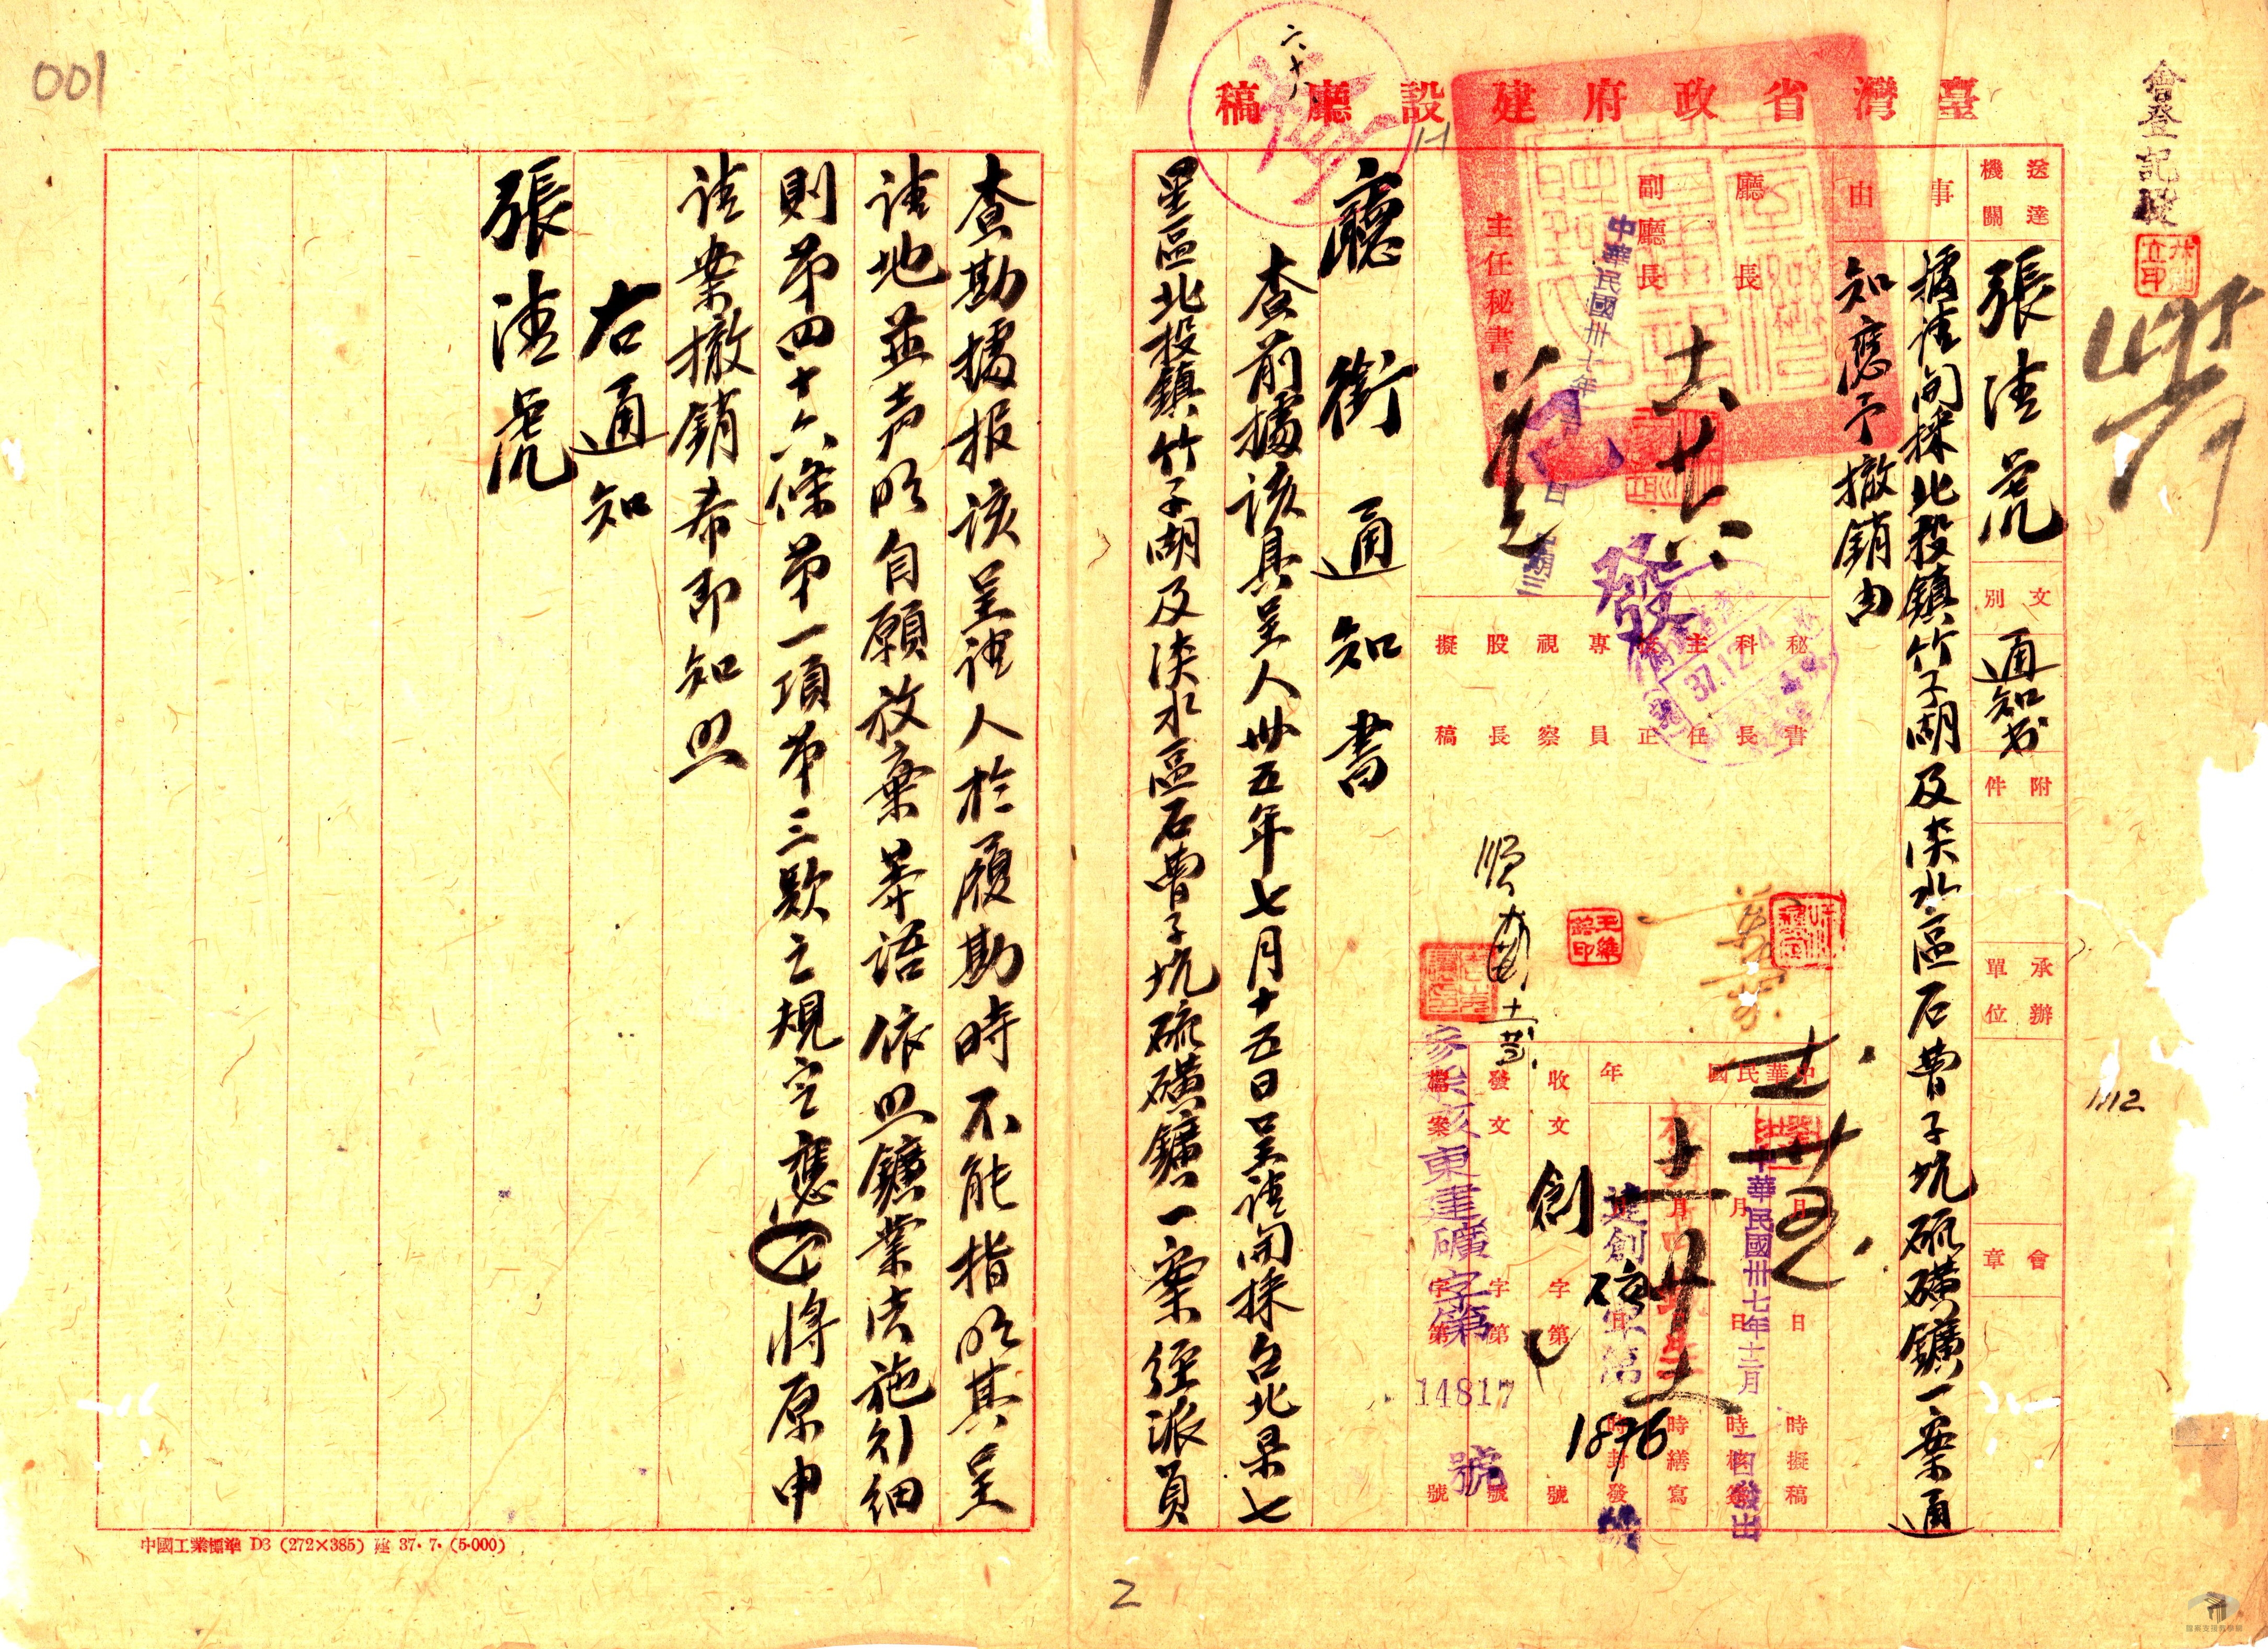 會登記股
臺灣省政府建設廳稿
送達機關
張清虎
文別
通知書
附件
承辦單位
會章
事由
據請開採北投鎮竹子湖及淡水區石曹子坑硫磺鑛一案通
知應予撤銷由
廳長
副廳長
主任秘書
中華民國卅七年
發
秘書
科長
主任
技正
專員
視察
股長
擬稿
37.12.14
中華民國
年
月 日 時擬稿
月 日 時核簽
月 日 時繕寫
月 日 時封發
中華民國卅七年十二月
日發出
收文 字第 號
發文 字第 號
檔案 字第 號
創
建創
字第
1876
亥東建礦字第
14817
號
廳銜通知書
查前據該具呈人卅五年七月十五日呈請開採台北縣七
星區北投鎮竹子湖及淡水區石曹子坑硫磺鑛一案經派員
查勘據报該呈請人於履勘時不能指明其呈
請地並声明自願放棄等語依照鑛業法施行細
則第四十六條第一項第三款之規定應將原申
請案撤銷希即知照
右通知
張清虎
中國工業標準 D3 (272×385) 建 37.7.(5.000)
001
1112
2
檔案支援教學網